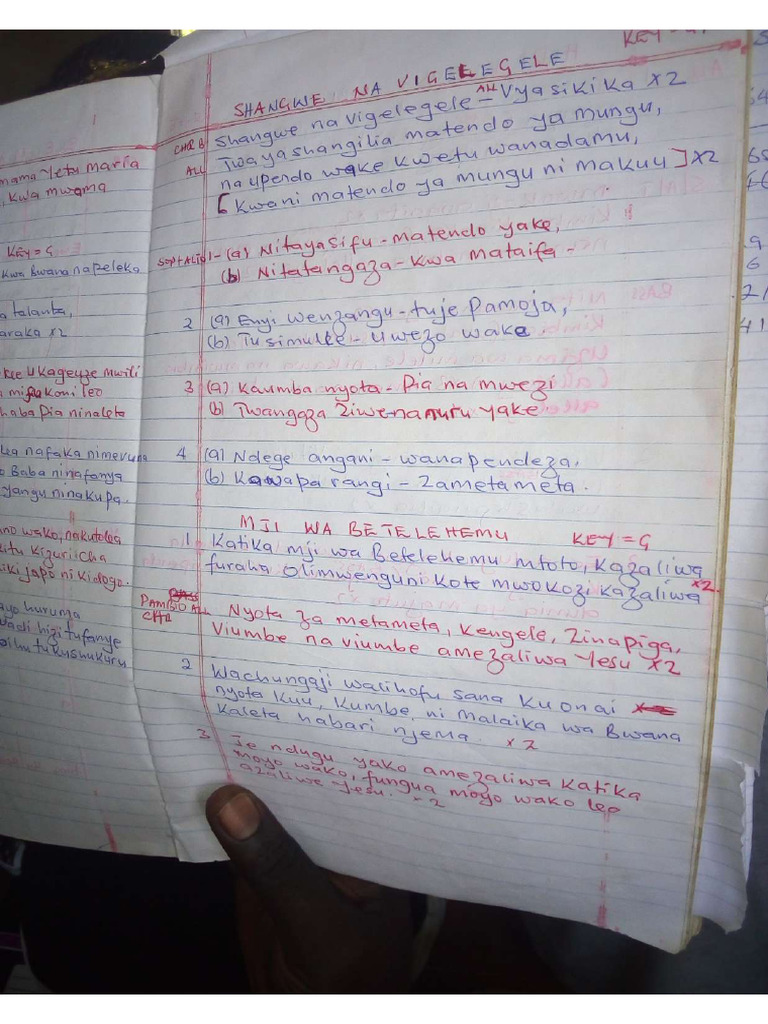 mama yetu maria
kwa mwama
KEY = G
kwa Bwana napeleka
a talanta,
araka x2
ukageuze mwili
leo
haba pia ninalete
nafaka nimevuna
Baba ninafanya
yangu ninakupa.
wako, nakutolea
kizuri cha
japo ni kidogo.
huruma
hizi tufanye
tukushukuru
KEY =
SHANGWE NA VIGELEGELE
CHOR B Shangwe na vigelegele - ALL Vyasikika x2
ALL Twayashangilia matendo ya mungu,
na upendo wake kwetu wanadamu,
[ Kwani matendo ya mungu ni makuu ] x2
SOPT ALTO 1 - (a) Nitayasifu - matendo yake,
(b) Nitatangaza - kwa mataifa -
2 (a) Enyi wenzangu - tuje pamoja,
(b) Tusimulie - uwezo wake
3 (a) Kaumba nyota - Pia na mwezi
(b) Twangaza ziwe na nuru yake
4 (a) Ndege angani - wanapendeza,
(b) Kawapa rangi - zametameta.
MJI WA BETELEHEMU KEY = G
1 Katika mji wa Betelehemu mtoto, kazaliwa
furaha Olimwenguni kote mwokozi kazaliwa x2
PAMBIO ALL Nyota za metameta, kengele, zinapiga,
CHO Viumbe na viumbe amezaliwa Yesu x2
2 Wachungaji walihofu sana kuonai
nyota kuu, kumbe, ni malaika wa Bwana
kaleta habari njema x2
3 Je ndugu yako amezaliwa katika
moyo wako, fungua moyo wako leo
azaliwe Yesu. x2